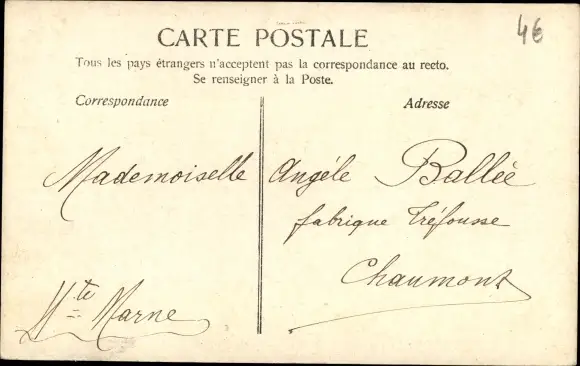 4€
CARTE POSTALE
Tous les pays étrangers n'acceptent pas la correspondance au recto.
Se renseigner à la Poste.
Correspondance
Adresse
Mademoiselle Angéle Ballée
fabrique Tréfousse
Chaumont
Hte Marne